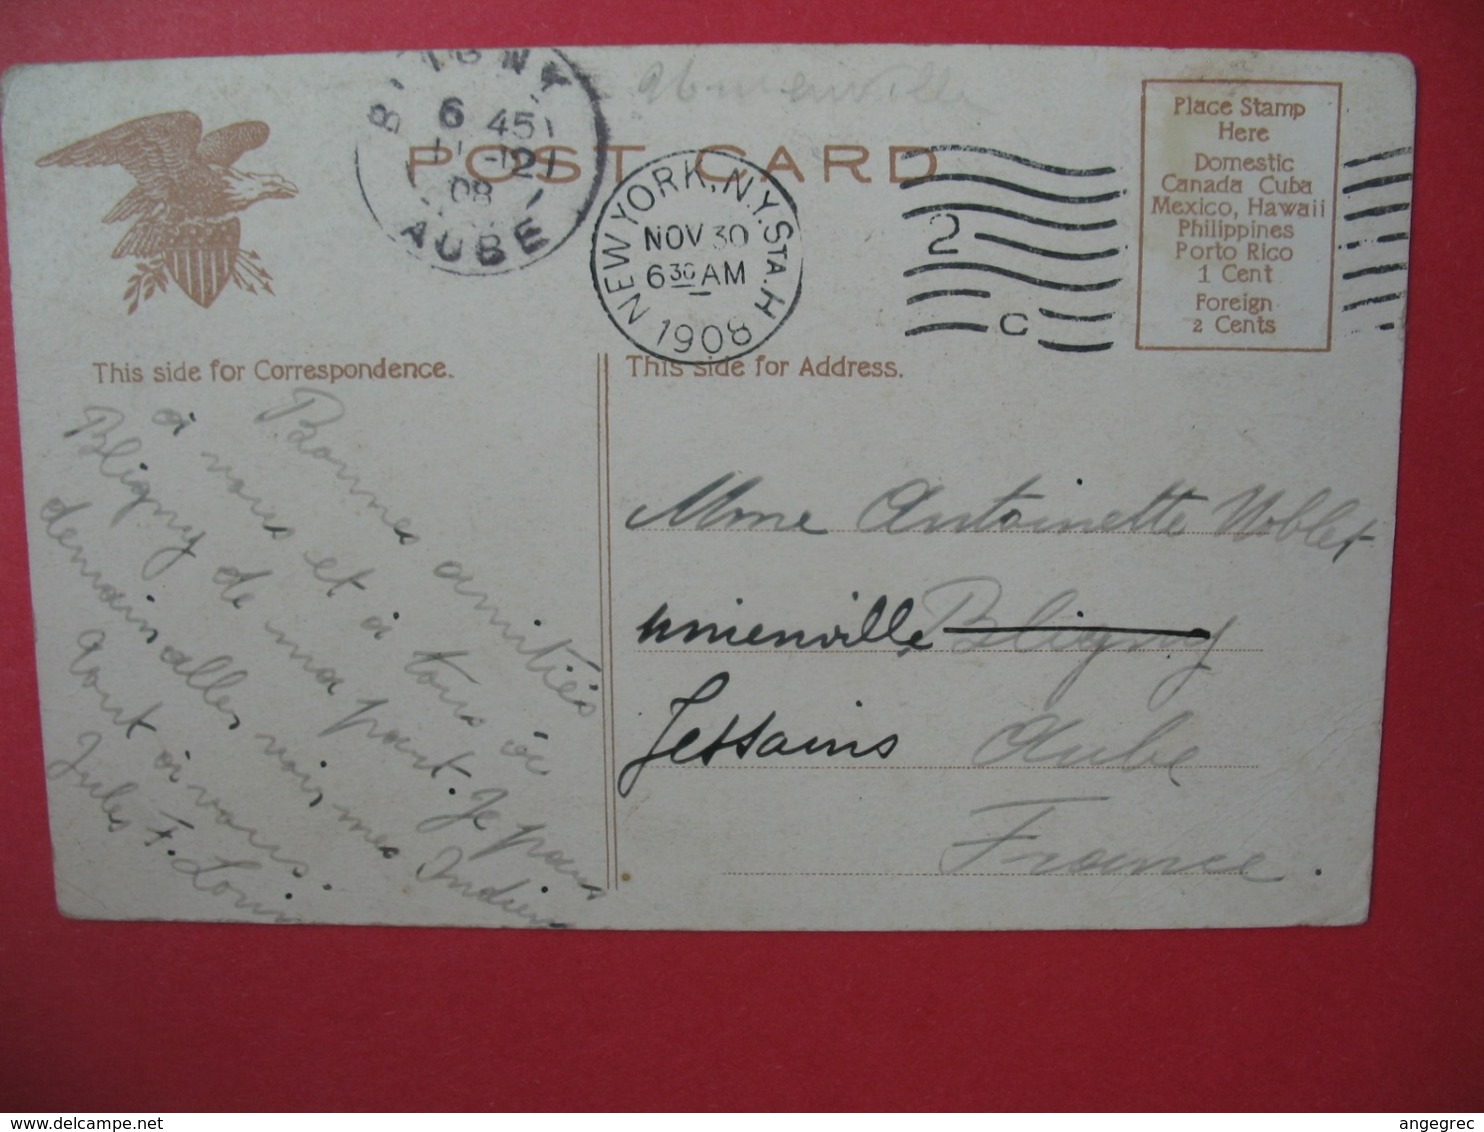 BLIGNY
6 45
11 -12
08
AUBE
POST CARD
NEW YORK, N.Y. STA. H
NOV 30
6 30 AM
1908
2
C
Place Stamp
Here
Domestic
Canada Cuba
Mexico, Hawaii
Philippines
Porto Rico
1 Cent
Foreign
2 Cents
This side for Correspondence.
Bonnes amitiés
à vous et à tous à
Bligny de ma part. Je pars
demain aller voir mes Indiens
tout à vous.
Jules F. Louis
This side for Address.
Mme Antoinette Noblet
unienville Bligny
Jessains Aube
France.
delcampe.net
angegrec